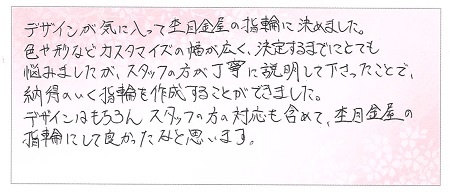 デザインが気に入って杢目金屋の指輪に決めました。
色や形などカスタマイズの幅が広く、決定するまでにとても
悩みましたが、スタッフの方が丁寧に説明して下さったことで、
納得のいく指輪を作成することができました。
デザインはもちろん スタッフの方の対応も含めて、杢目金屋の
指輪にして良かったなと思います。